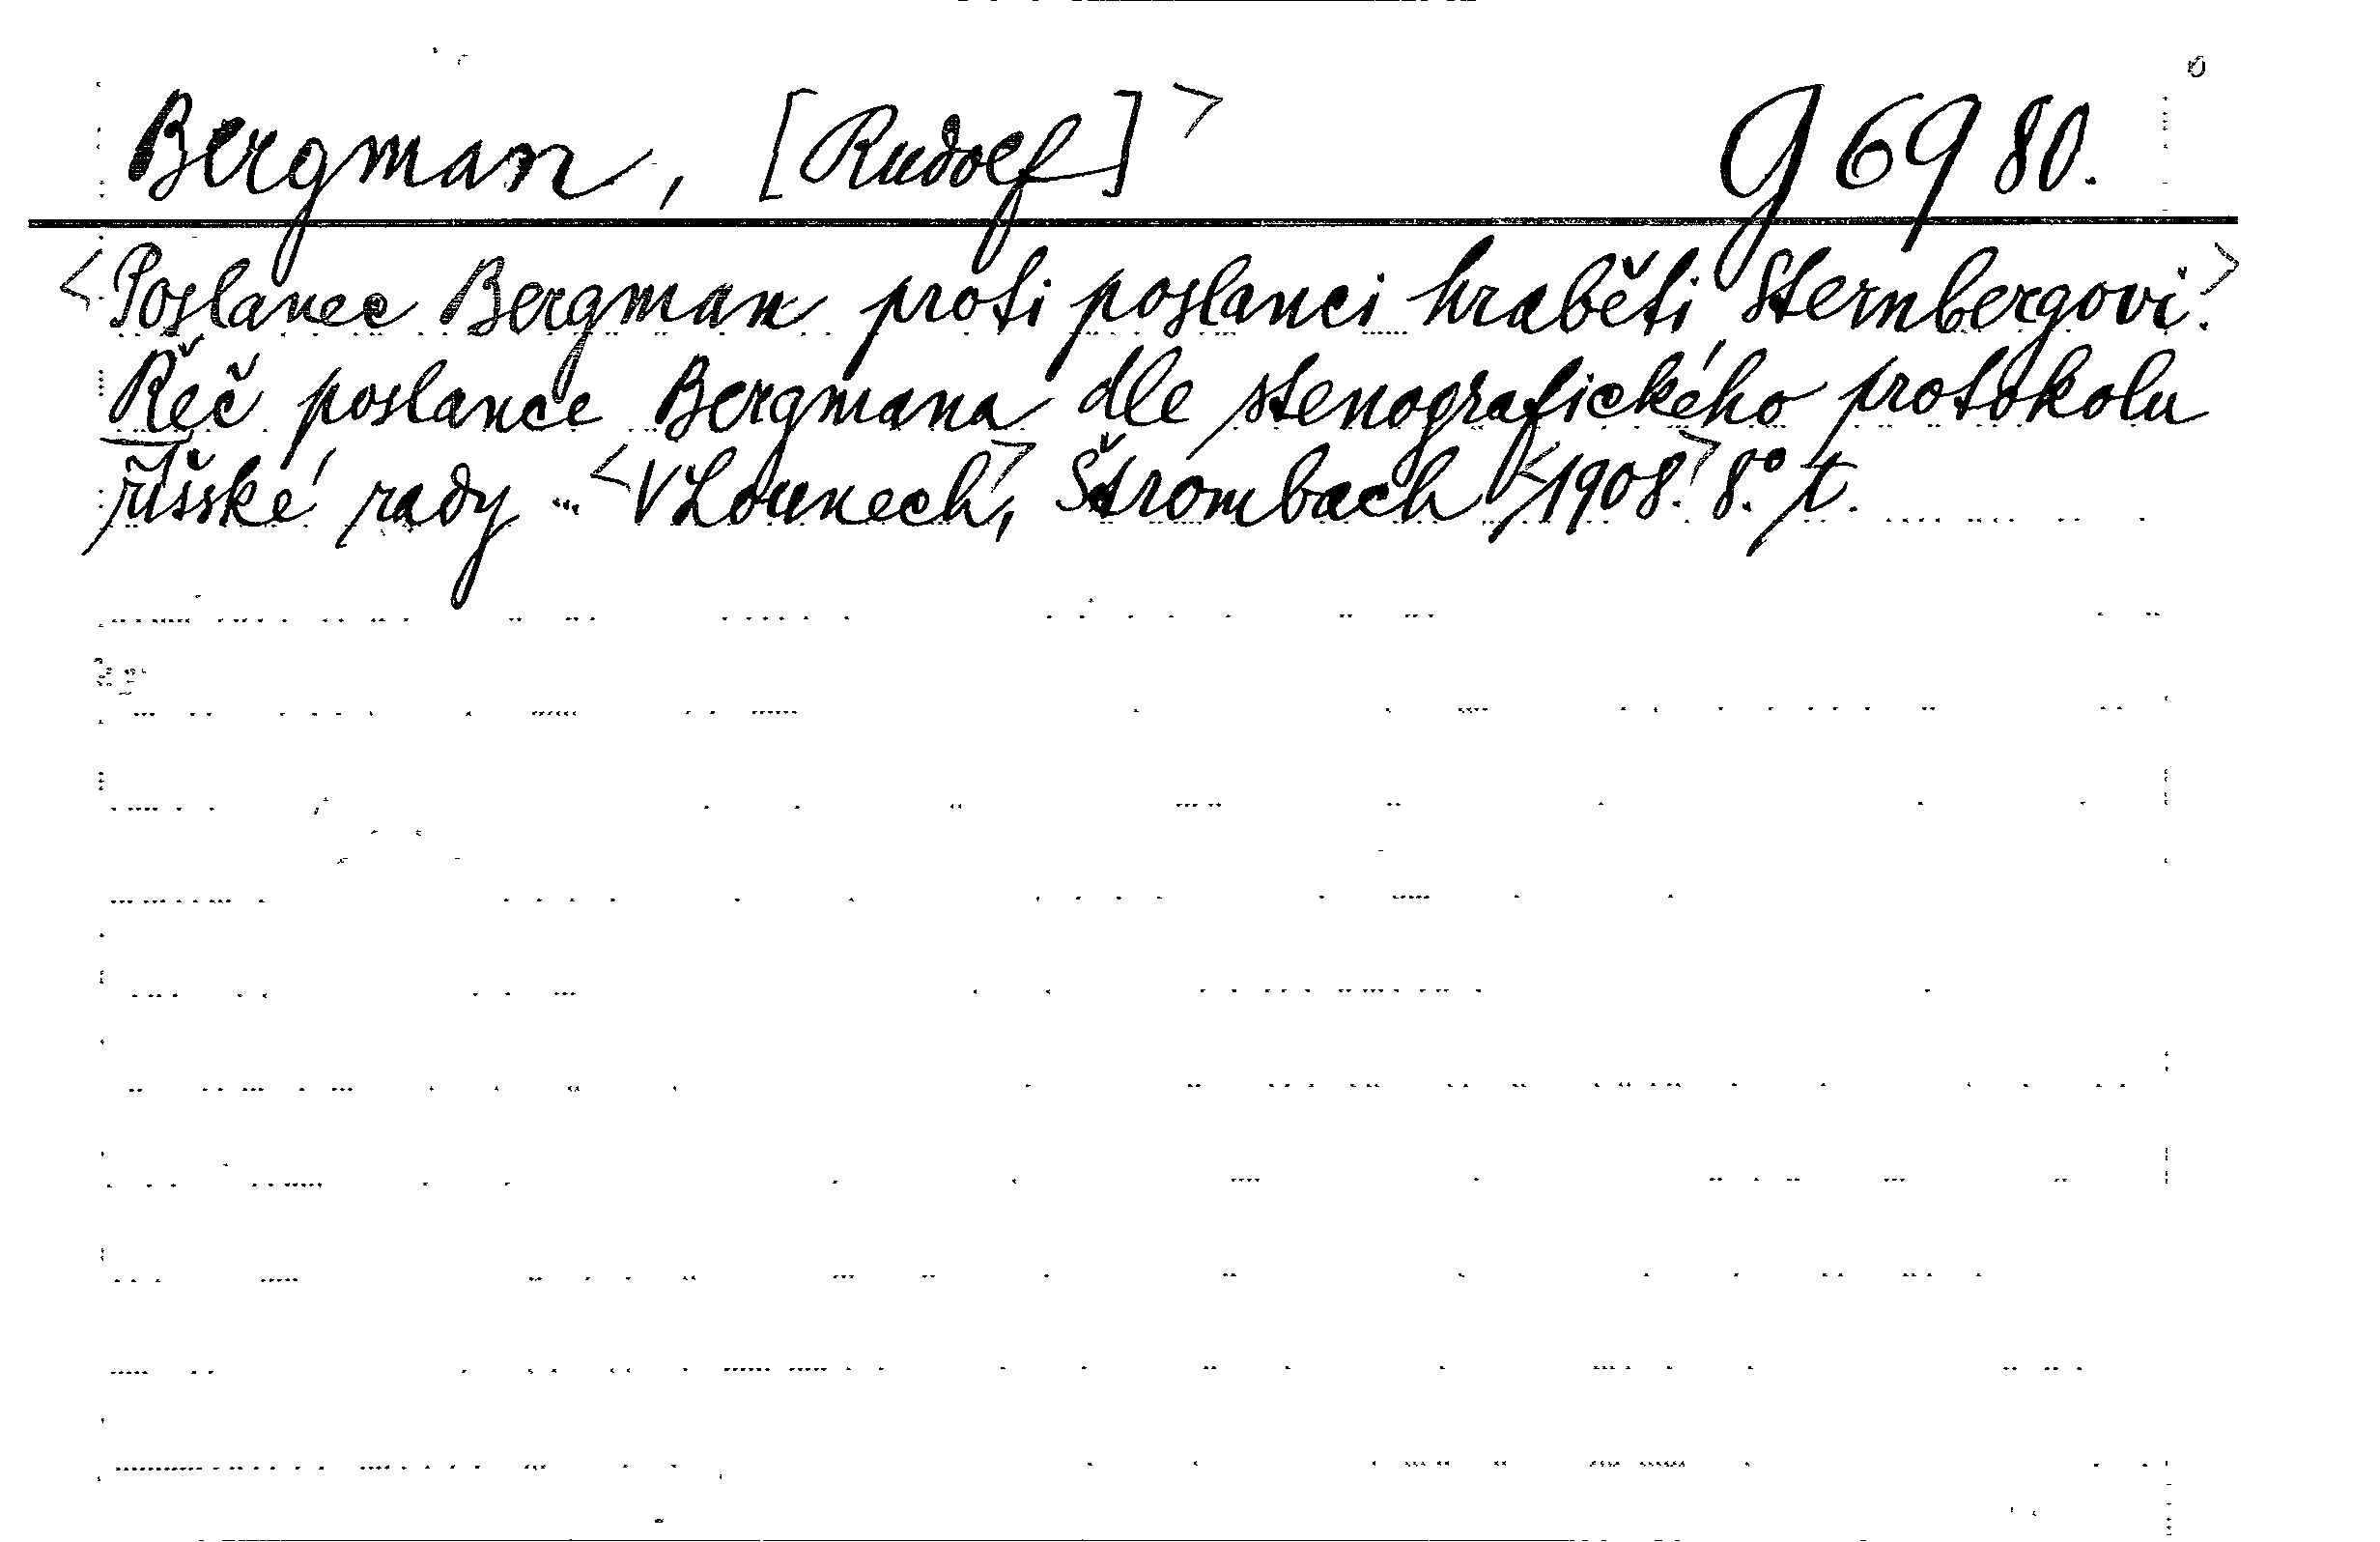 Bergman, [Rudolf]> g 69 80.
<Poslanec Bergman proti poslanci hraběti Sternbergovi.>
Řeč poslance Bergmana dle stenografického protokolu
říšské rady ... <V Lounech>, Štrombach <1908.> 8.° t.